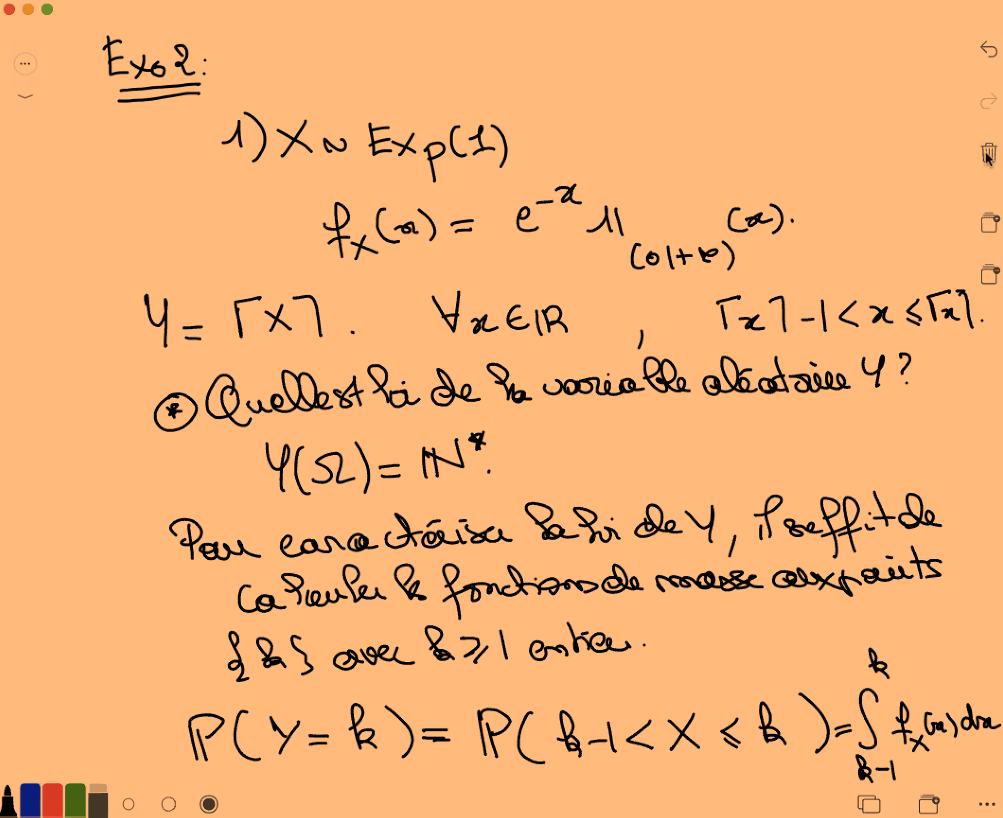 Exo2:
1) X ~ Exp(1)
f_X(x) = e^{-x} 𝟙_{(0,+∞)}(x).
Y = ⌈X⌉. ∀x∈ℝ, ⌈x⌉-1 < x ≤ ⌈x⌉.
* Quelle est loi de la variable aléatoire Y?
Y(Ω) = ℕ*.
Pour caractériser la loi de Y, il suffit de
calculer la fonctions de masse aux points
{k} avec k ≥ 1 entier.
ℙ(Y=k) = ℙ(k-1 < X ≤ k) = ∫_{k-1}^{k} f_X(x)dx